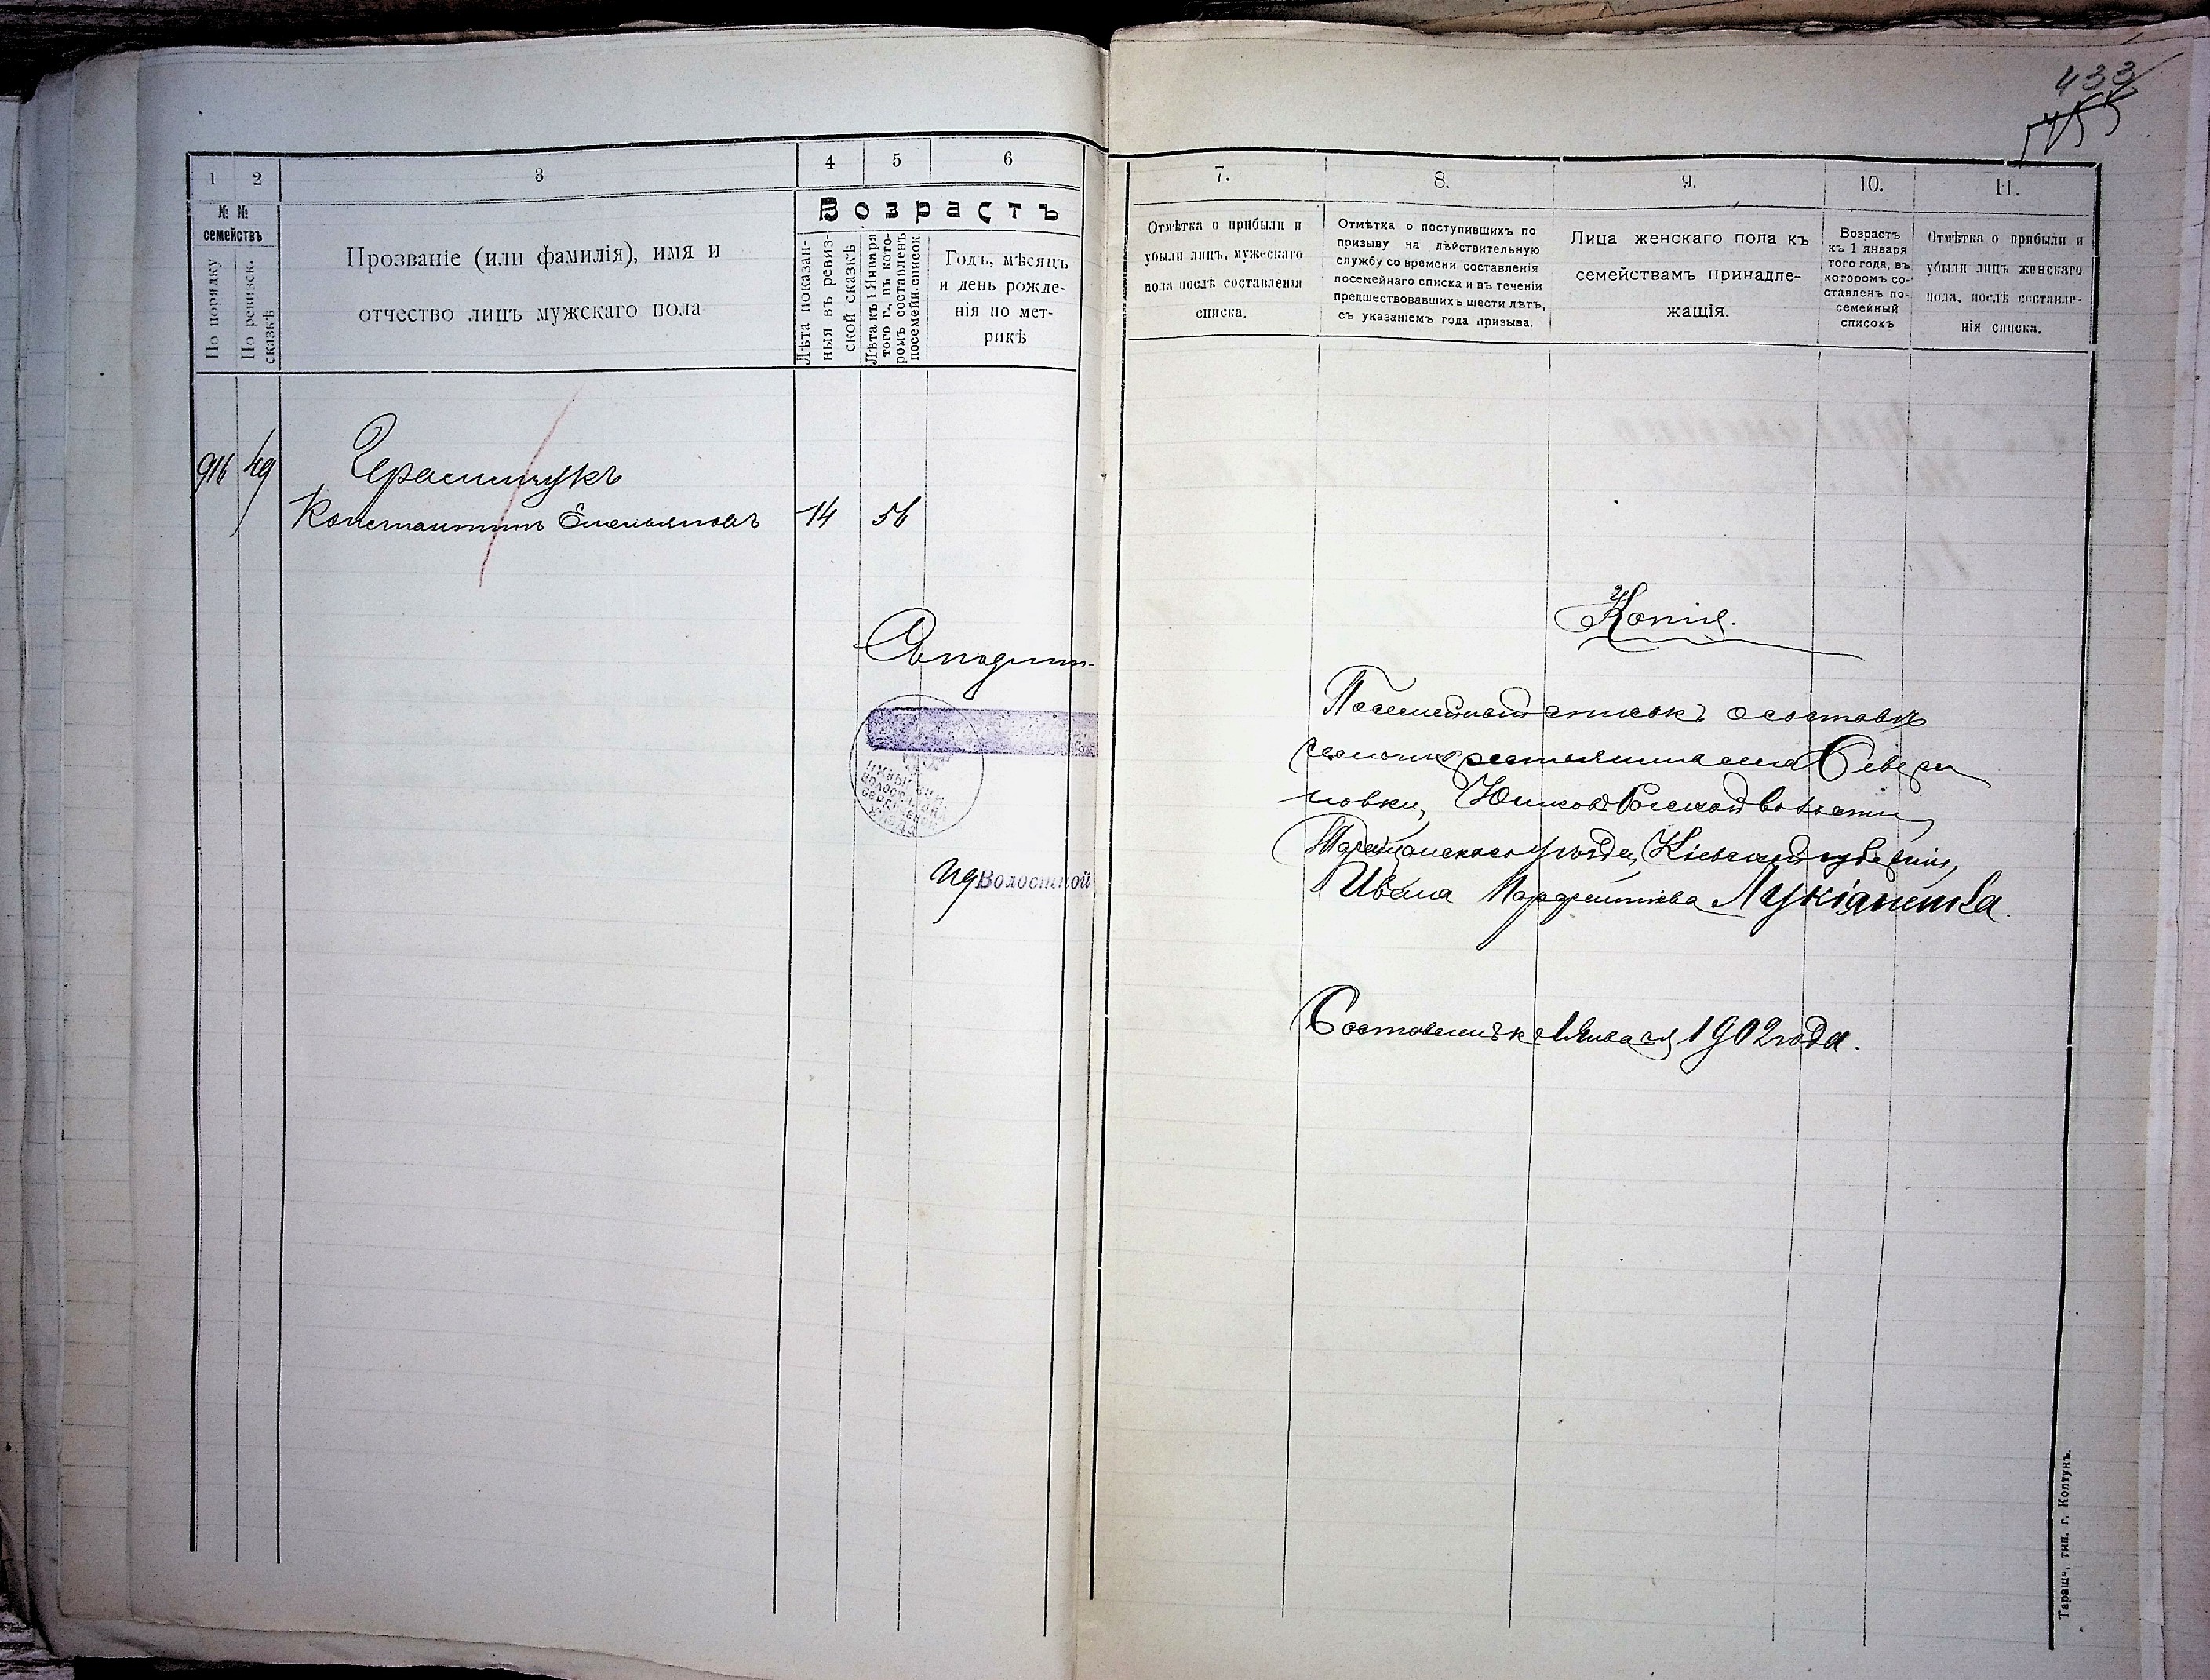 433
1 2 3 4 5 6
№ № семействъ
По порядку
По ревизск. сказкѣ
Прозваніе (или фамилія), имя и
отчество лицъ мужскаго пола
Возрастъ
Лѣта показан-
ныя въ ревиз-
ской сказкѣ
Лѣта къ 1 Января
того г., въ кото-
ромъ составленъ
посемейн. список
Годъ, мѣсяцъ
и день рожде-
нія по мет-
рикѣ
916 49 Герасимчукъ
Константинъ Емельяновъ 14 56
Волостной
7. 8. 9. 10. 11.
Отмѣтка о прибыли и
убыли лицъ, мужескаго
пола послѣ составленія
списка.
Отмѣтка о поступившихъ по
призыву на дѣйствительную
службу со времени составленія
посемейнаго списка и въ теченіи
предшествовавшихъ шести лѣтъ,
съ указаніемъ года призыва.
Лица женскаго пола къ
семействамъ принадле-
жащія.
Возрастъ
къ 1 января
того года, въ
которомъ со-
ставленъ по-
семейный
списокъ
Отмѣтка о прибыли и
убыли лицъ женскаго
пола, послѣ составле-
нія списка.
Копія.
Посемейный списокъ о составѣ
семьи крестьянина села Севери
новки, Юшково Рогской волости,
Таращанскаго уѣзда, Кіевской губерніи,
Ивана Парфентіева Лукіаненка.
Составленъ къ 1 Января 1902 года.
Тараща, тип. г. Колтунъ.